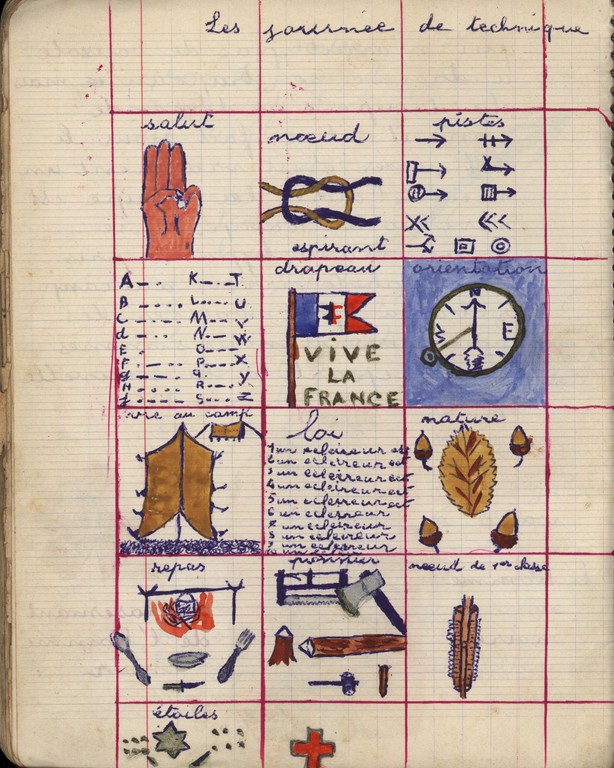 Les journée de technique
salut
nœud
espirant
pistes
A K T
B L U
C M V
d N W
E O X
F P Y
H R Z
S
drapeau
VIVE
LA
FRANCE
orientation
N
E
O
S
vie au camp
loi
1 un eclaireur est
2 un eclaireur est
3 un eclaireur est
4 un eclaireur est
5 un eclaireur est
6 un eclaireur
un eclaireur
8 un eclaireur
un eclaireur
nature
repas
pionnier
nœud de 1er classe
étoiles